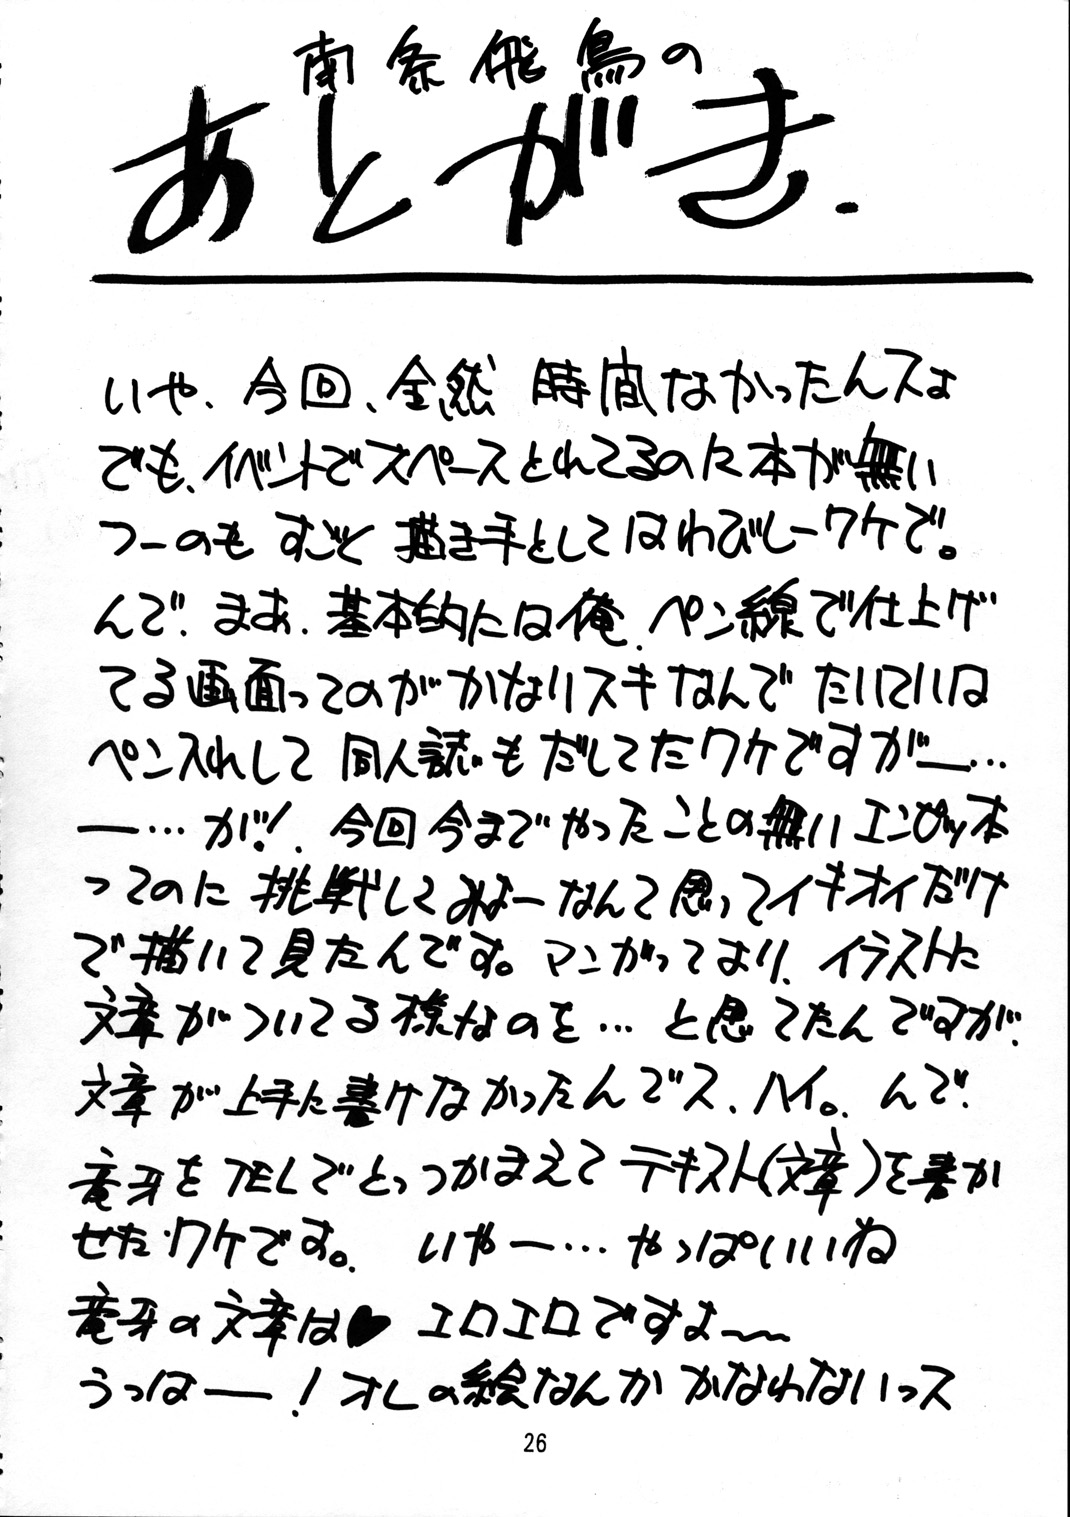 南条飛鳥の
あとがき.
いや、今回、全然 時間なかったんスよ
でも、イベントでスペースとれてるのに本が無い
つーのも すごく 描き手としてはわびしーワケで。
んで、まあ、基本的には俺、ペン線で仕上げ
てる画面ってのがかなりスキなんで たいていは
ペン入れして 同人誌もだしてたワケですがー…
ー…が!、今回今までやったことの無いエンピツ本
ってのに 挑戦してみよーなんて思ってイキオイだけ
で描いて見たんです。マンガってより、イラストに
文章がついてる様なのを… と思てたんですが、
文章が上手に書けなかったんでス、ハイ。んで、
竜牙をTELでとっつかまえて テキスト(文章)を書か
せたワケです。 いやー… やっぱいいね
竜牙の文章は♥ エロエロですよ〜
うっはー! オレの絵なんか かなわないっス
26